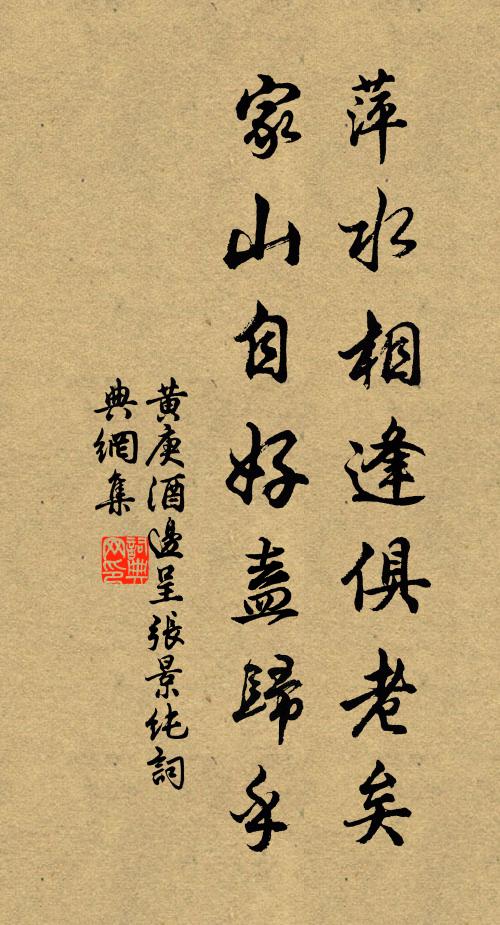 萍水相逢俱老矣
家山自好盍歸乎
黄庚酒邊呈張景純詞
典網集
詞典網印